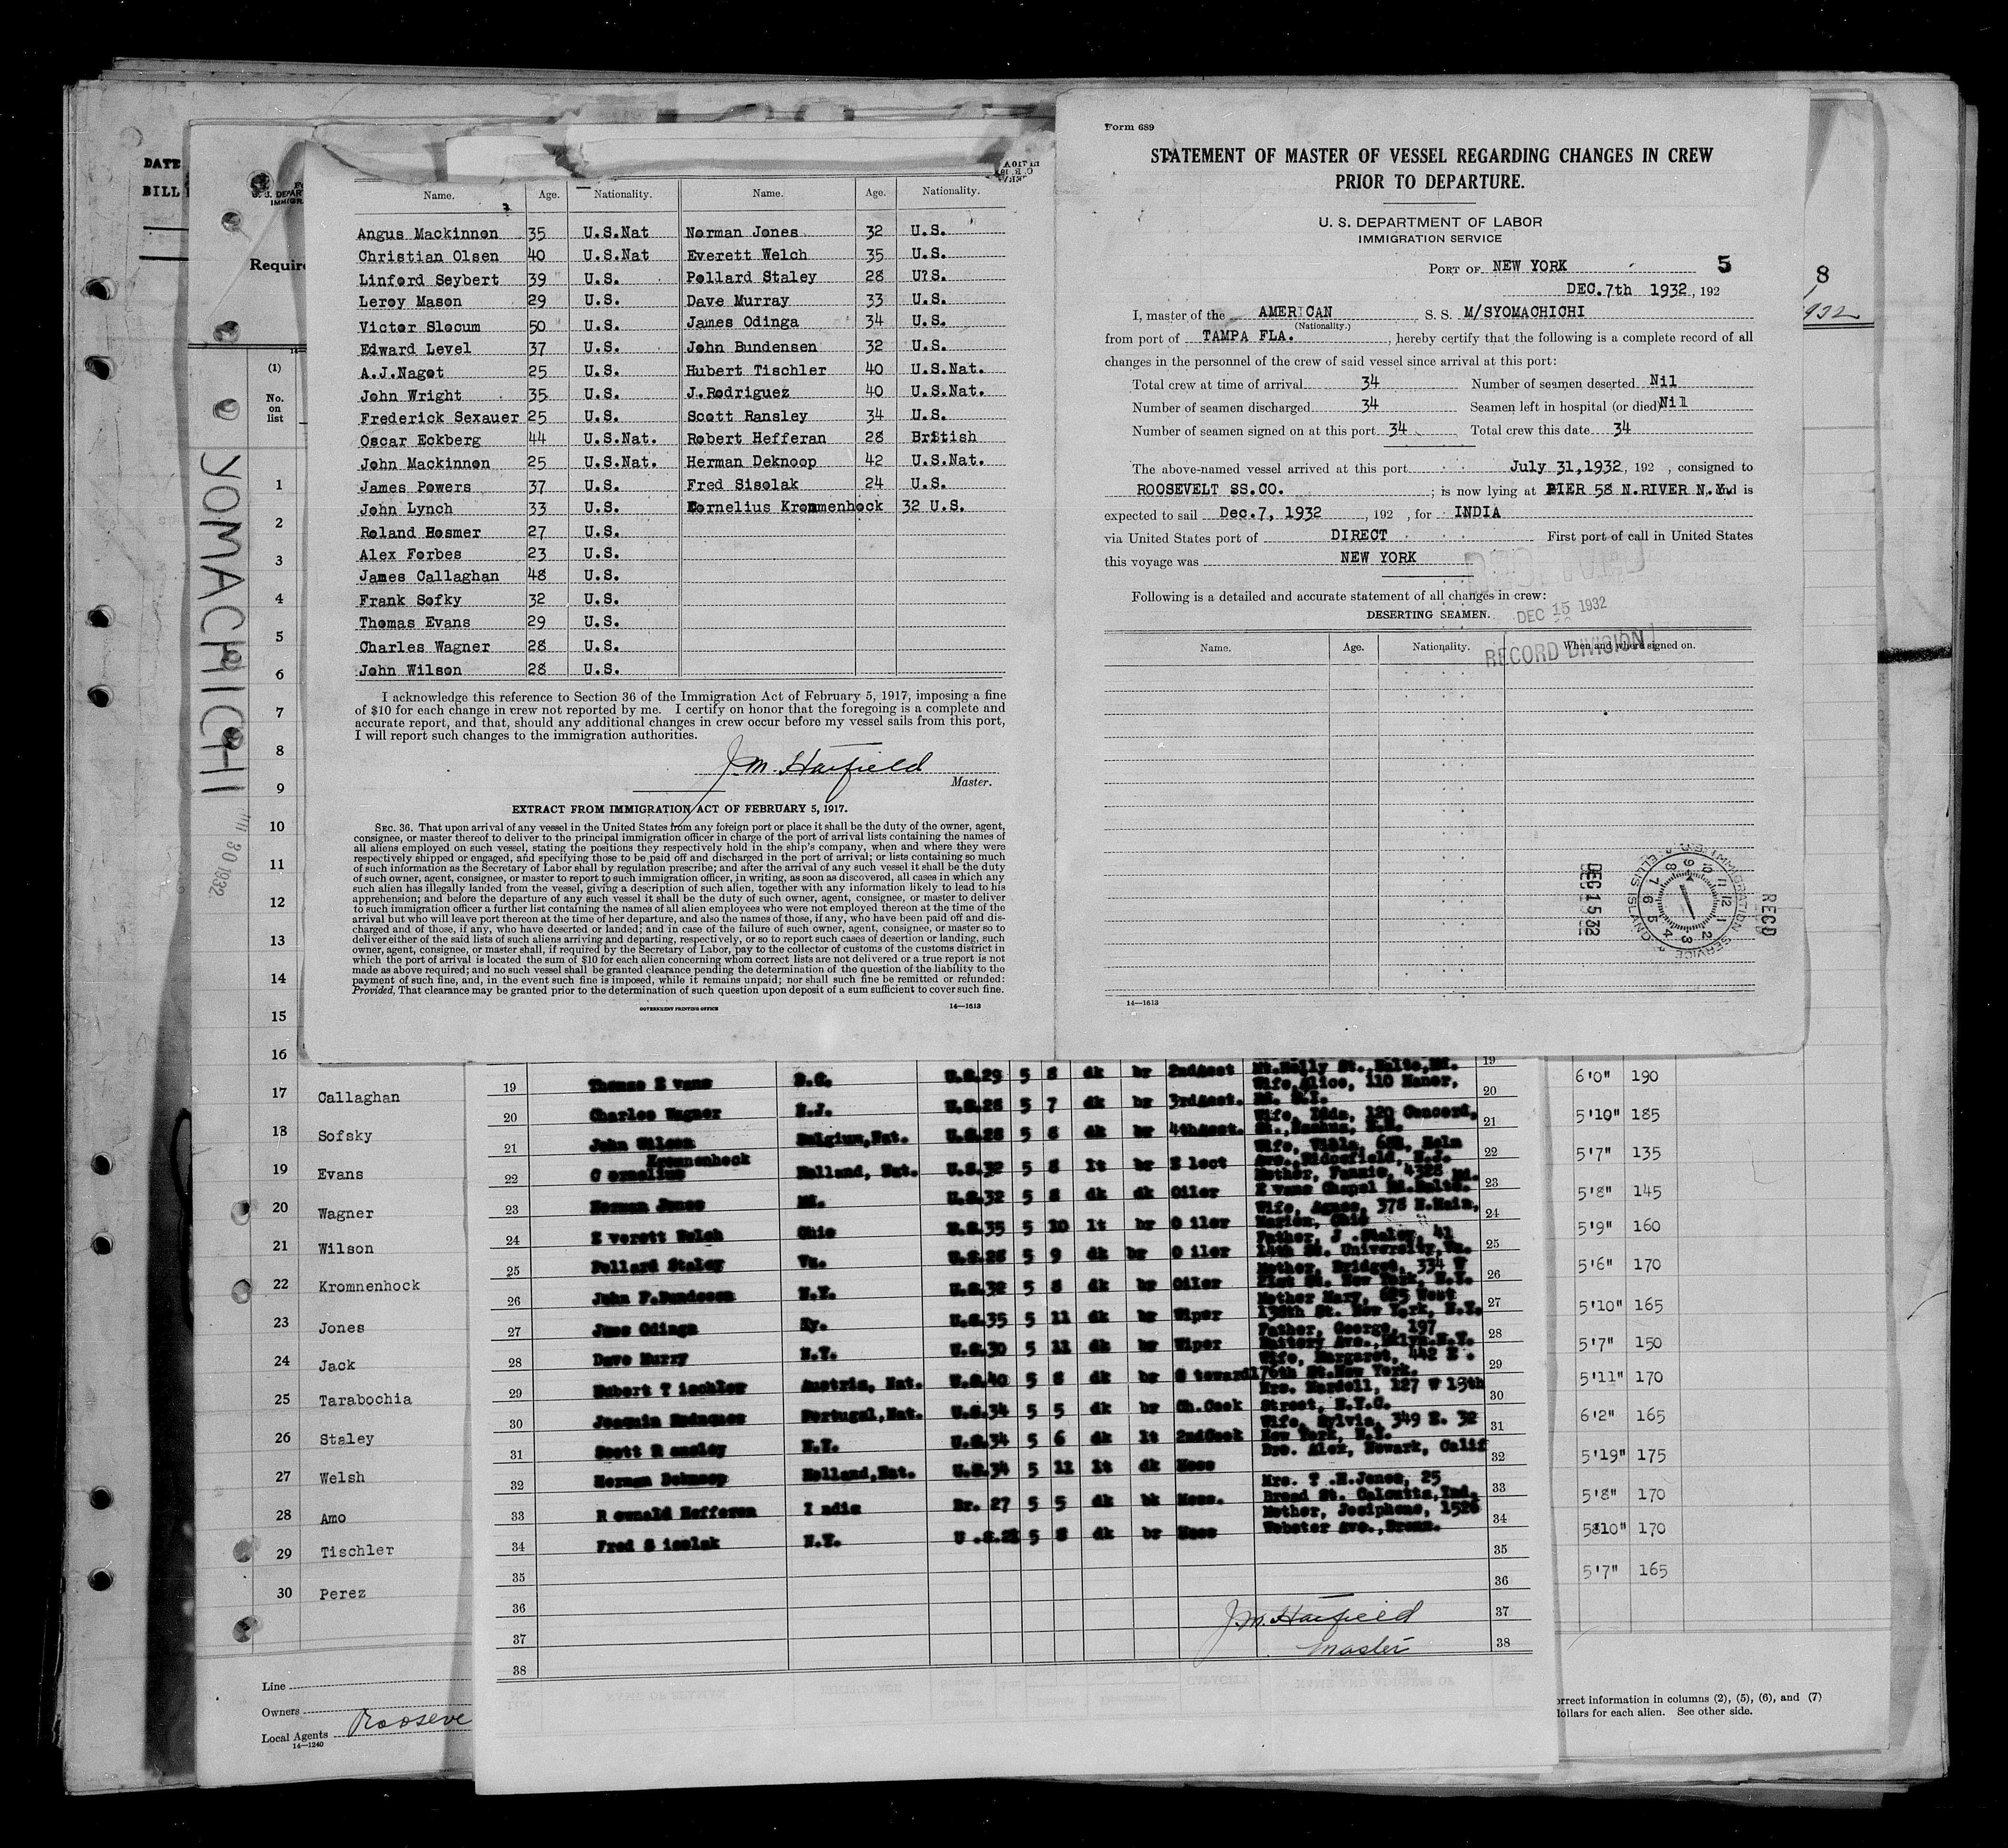 DATE
BILL
Require
(1)
No.
on
list
YOMACHICHI
30 1932
8
1932
Name. Age. Nationality. Name. Age. Nationality.
Angus Mackinnon 35 U.S.Nat Norman Jones 32 U.S.
Christian Olsen 40 U.S.Nat Everett Welch 35 U.S.
Linford Seybert 39 U.S. Pollard Staley 28 U?S.
Leroy Mason 29 U.S. Dave Murray 33 U.S.
Victor Slocum 50 U.S. James Odinga 34 U.S.
Edward Level 37 U.S. John Bundensen 32 U.S.
A.J.Nagot 25 U.S. Hubert Tischler 40 U.S.Nat.
John Wright 35 U.S. J.Rodriguez 40 U.S.Nat.
Frederick Sexauer 25 U.S. Scott Ransley 34 U.S.
Oscar Eckberg 44 U.S.Nat. Robert Hefferan 28 British
John Mackinnon 25 U.S.Nat. Herman Deknoop 42 U.S.Nat.
James Powers 37 U.S. Fred Sisolak 24 U.S.
John Lynch 33 U.S. Cornelius Krommenhock 32 U.S.
Roland Hosmer 27 U.S.
Alex Forbes 23 U.S.
James Callaghan 48 U.S.
Frank Sofky 32 U.S.
Thomas Evans 29 U.S.
Charles Wagner 28 U.S.
John Wilson 28 U.S.
I acknowledge this reference to Section 36 of the Immigration Act of February 5, 1917, imposing a fine
of $10 for each change in crew not reported by me. I certify on honor that the foregoing is a complete and
accurate report, and that, should any additional changes in crew occur before my vessel sails from this port,
I will report such changes to the immigration authorities.
J.M. Hatfield
Master.
EXTRACT FROM IMMIGRATION ACT OF FEBRUARY 5, 1917.
SEC. 36. That upon arrival of any vessel in the United States from any foreign port or place it shall be the duty of the owner, agent,
consignee, or master thereof to deliver to the principal immigration officer in charge of the port of arrival lists containing the names of
all aliens employed on such vessel, stating the positions they respectively hold in the ship's company, when and where they were
respectively shipped or engaged, and specifying those to be paid off and discharged in the port of arrival; or lists containing so much
of such information as the Secretary of Labor shall by regulation prescribe; and after the arrival of any such vessel it shall be the duty
of such owner, agent, consignee, or master to report to such immigration officer, in writing, as soon as discovered, all cases in which any
such alien has illegally landed from the vessel, giving a description of such alien, together with any information likely to lead to his
apprehension; and before the departure of any such vessel it shall be the duty of such owner, agent, consignee, or master to deliver
to such immigration officer a further list containing the names of all alien employees who were not employed thereon at the time of the
arrival but who will leave port thereon at the time of her departure, and also the names of those, if any, who have been paid off and dis-
charged and of those, if any, who have deserted or landed; and in case of the failure of such owner, agent, consignee, or master so to
deliver either of the said lists of such aliens arriving and departing, respectively, or so to report such cases of desertion or landing, such
owner, agent, consignee, or master shall, if required by the Secretary of Labor, pay to the collector of customs of the customs district in
which the port of arrival is located the sum of $10 for each alien concerning whom correct lists are not delivered or a true report is not
made as above required; and no such vessel shall be granted clearance pending the determination of the question of the liability to the
payment of such fine, and, in the event such fine is imposed, while it remains unpaid; nor shall such fine be remitted or refunded:
Provided, That clearance may be granted prior to the determination of such question upon deposit of a sum sufficient to cover such fine.
GOVERNMENT PRINTING OFFICE 14—1613
Form 689
STATEMENT OF MASTER OF VESSEL REGARDING CHANGES IN CREW
PRIOR TO DEPARTURE.
U. S. DEPARTMENT OF LABOR
IMMIGRATION SERVICE
PORT OF NEW YORK 5
DEC.7th 1932, 192
I, master of the AMERICAN S. S. M/SYOMACHICHI
(Nationality.)
from port of TAMPA FLA., hereby certify that the following is a complete record of all
changes in the personnel of the crew of said vessel since arrival at this port:
Total crew at time of arrival 34 Number of seamen deserted Nil
Number of seamen discharged 34 Seamen left in hospital (or died) Nil
Number of seamen signed on at this port 34 Total crew this date 34
The above-named vessel arrived at this port July 31,1932, 192 , consigned to
ROOSEVELT SS.CO. ; is now lying at PIER 58 N.RIVER N.Y. and is
expected to sail Dec.7, 1932, 192 , for INDIA
via United States port of DIRECT First port of call in United States
this voyage was NEW YORK
Following is a detailed and accurate statement of all changes in crew:
DESERTING SEAMEN.
RECEIVED
DEC 15 1932
RECORD DIVISION
Name. Age. Nationality. When and where signed on.
DEC 15 32
IMMIGRATION SERVICE ELLIS ISLAND
RECD
14—1613
1
2
3
4
5
6
7
8
9
10
11
12
13
14
15
16
17 Callaghan 6'0" 190
18 Sofsky 5'10" 185
19 Evans 5'7" 135
20 Wagner 5'8" 145
21 Wilson 5'9" 160
22 Kromnenhock 5'6" 170
23 Jones 5'10" 165
24 Jack 5'7" 150
25 Tarabochia 5'11" 170
26 Staley 6'2" 165
27 Welsh 5'19" 175
28 Amo 5'8" 170
29 Tischler 5810" 170
30 Perez 5'7" 165
19 Thomas E vans U.S.29 5 8 dk br 2ndAsst Mt.Holly St.,Balto,Md. 19
20 Charles Wagner N.J. U.S.28 5 7 dk br 3rdAsst. Wife,Alice, 110 Manor, 20
21 John Wilson Belgium,Nat. U.S.28 5 6 dk br 4thAsst. Wife, Idda, 120 Concord, 21
22 C ornelius Kromnenhock Holland, Nat. U.S.32 5 8 lt br E lect 22
23 Norman Jones Md. U.S.32 5 8 dk dk Oiler Mother, Fannie, 4328 23
E vans Chapel Rd.Balto.
24 E verett Welch Ohio U.S.35 5 10 lt br O iler Wife, Agnes, 378 N.Main, 24
Marion, Ohio
25 Pollard Staley Va. U.S.28 5 9 dk br O iler Father, J .Staley, 41 25
14th St. University,Va.
26 John F.Bundesen N.Y. U.S.32 5 8 dk br Oiler Mother, Bridget, 334 W 26
21st St. New York, N.Y.
27 Jmes Odinga Ky. U.S.35 5 11 dk br Wiper Mother Mary, 625 West 27
138th St. New York, N.Y.
28 Dave Murry N.Y. U.S.30 5 11 dk br Wiper Father, George, 197 28
Battery Ave.,Bklyn.N.Y.
29 Hubert T ischler Austria, Nat. U.S.40 5 8 dk br S teward Wife, Margaret, 442 E . 29
176th St.New York.
30 Joaquin Rodnques Portugal,Nat. U.S.34 5 5 dk br Ch.Cook Mrs. Mardell, 127 W 13th 30
Street, N.Y.C.
31 Scott R ansley N.Y. U.S.34 5 6 dk lt 2ndCook Wife, Sylvia, 349 E. 32 31
New York, N.Y.
32 Herman Deknoop Holland,Nat. U.S.34 5 11 lt dk Mess Bro. Alex, Newark, Calif 32
33 R ownald Hefferan I ndia Br. 27 5 5 dk bk Mess. Mrs. T .H.Jones, 25 33
Broad St. Calcutta,Ind.
34 Fred S isolak N.Y. U .S.21 5 8 dk br Mess Mother, Josiphene, 1526 34
Webster Ave.,Bronx.
35 35
36 36
37 J.M. Hatfield 37
38 Master 38
Line
Owners
Local Agents Rooseve
14—1240
orrect information in columns (2), (5), (6), and (7)
dollars for each alien. See other side.